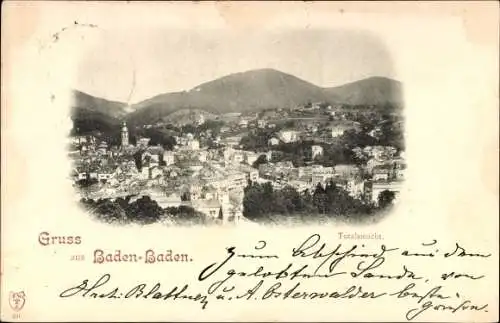 Totalansicht.
Gruss
aus Baden-Baden.
Zum Abschied aus dem
gelobten Lande, von
u. A. Osterwalder beste
Grüße.